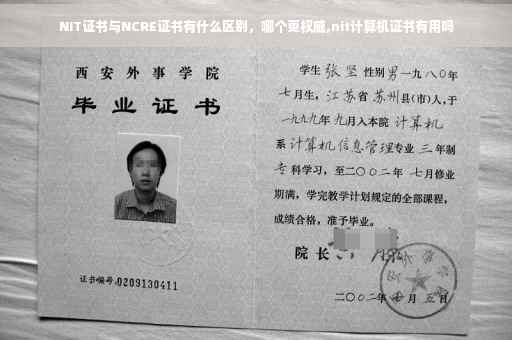 NIT证书与NCRE证书有什么区别，哪个更权威,nit计算机证书有用吗
西安外事学院
毕业证书
证书编号:0209130411
学生 张坚 性别 男 一九八〇年
七月生，江苏省 苏州县(市)人,于
一九九九年 九月入本院 计算机
系 计算机信息管理专业 三 年制
专科学习，至二〇〇二年 七月修业
期满，学完教学计划规定的全部课程，
成绩合格，准予毕业。
院长
二〇〇二年 月 五日